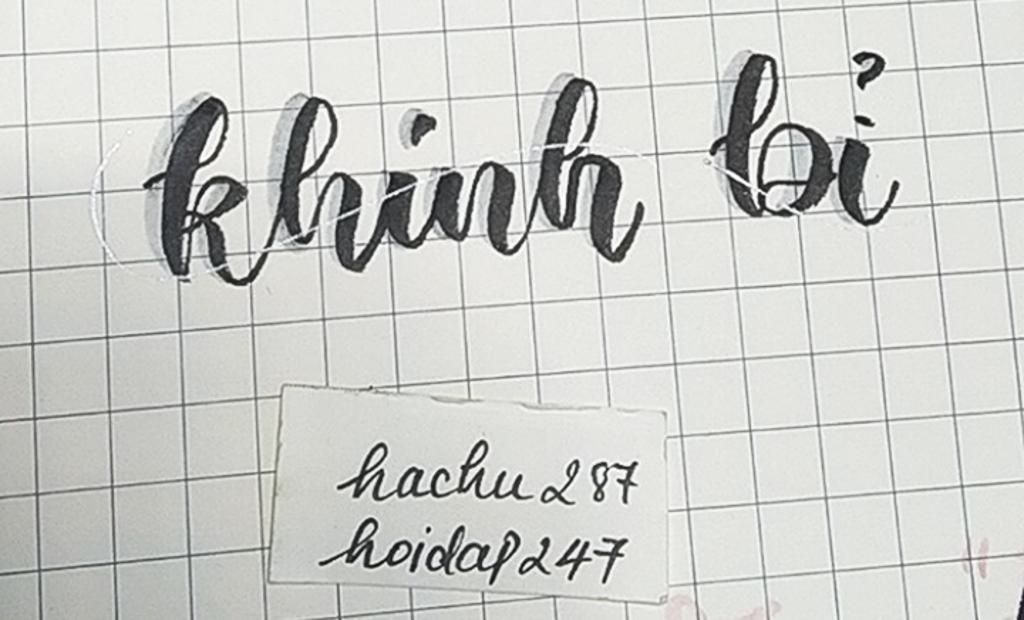 khinh bỉ
hachu287
hoidap247